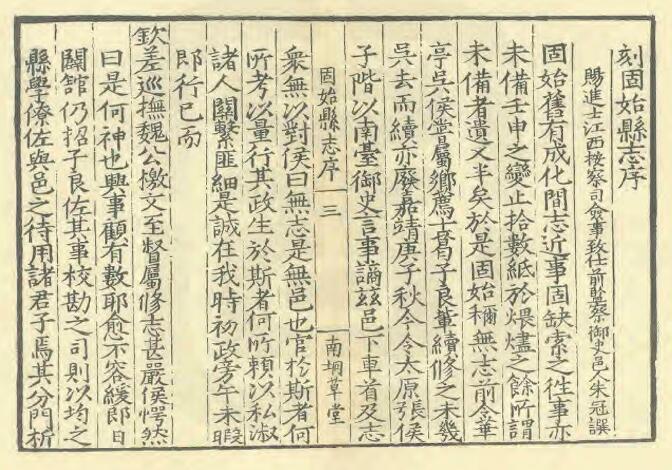 刻固始縣志序
賜進士江西按察司僉事致仕前監察御史邑人朱冠譔
固始舊有成化間志近事固缺索之徃事亦
未備壬申之變止拾數紙於煨燼之餘所謂
未備者遺又半矣於是固始穪無志前令華
亭吳侯嘗屬鄉薦士胥子良董續修之未幾
吳去而續亦廢嘉靖庚子秋今令太原張侯
子階以南臺御史言事謫茲邑下車首及志
固始縣志序
三
南垌草堂
衆無以對侯曰無志是無邑也官於斯者何
所考以量行其政生於斯者何所賴以私淑
諸人關繫匪細是誠在我時初政旁午未暇
即行已而
欽差巡撫魏公檄文至督屬修志甚嚴侯愕然
曰是何神也興事顧有數耶愈不容緩即日
闢舘仍招子良佐其事校勘之司則以均之
縣學僚佐與邑之待用諸君子焉其分門析